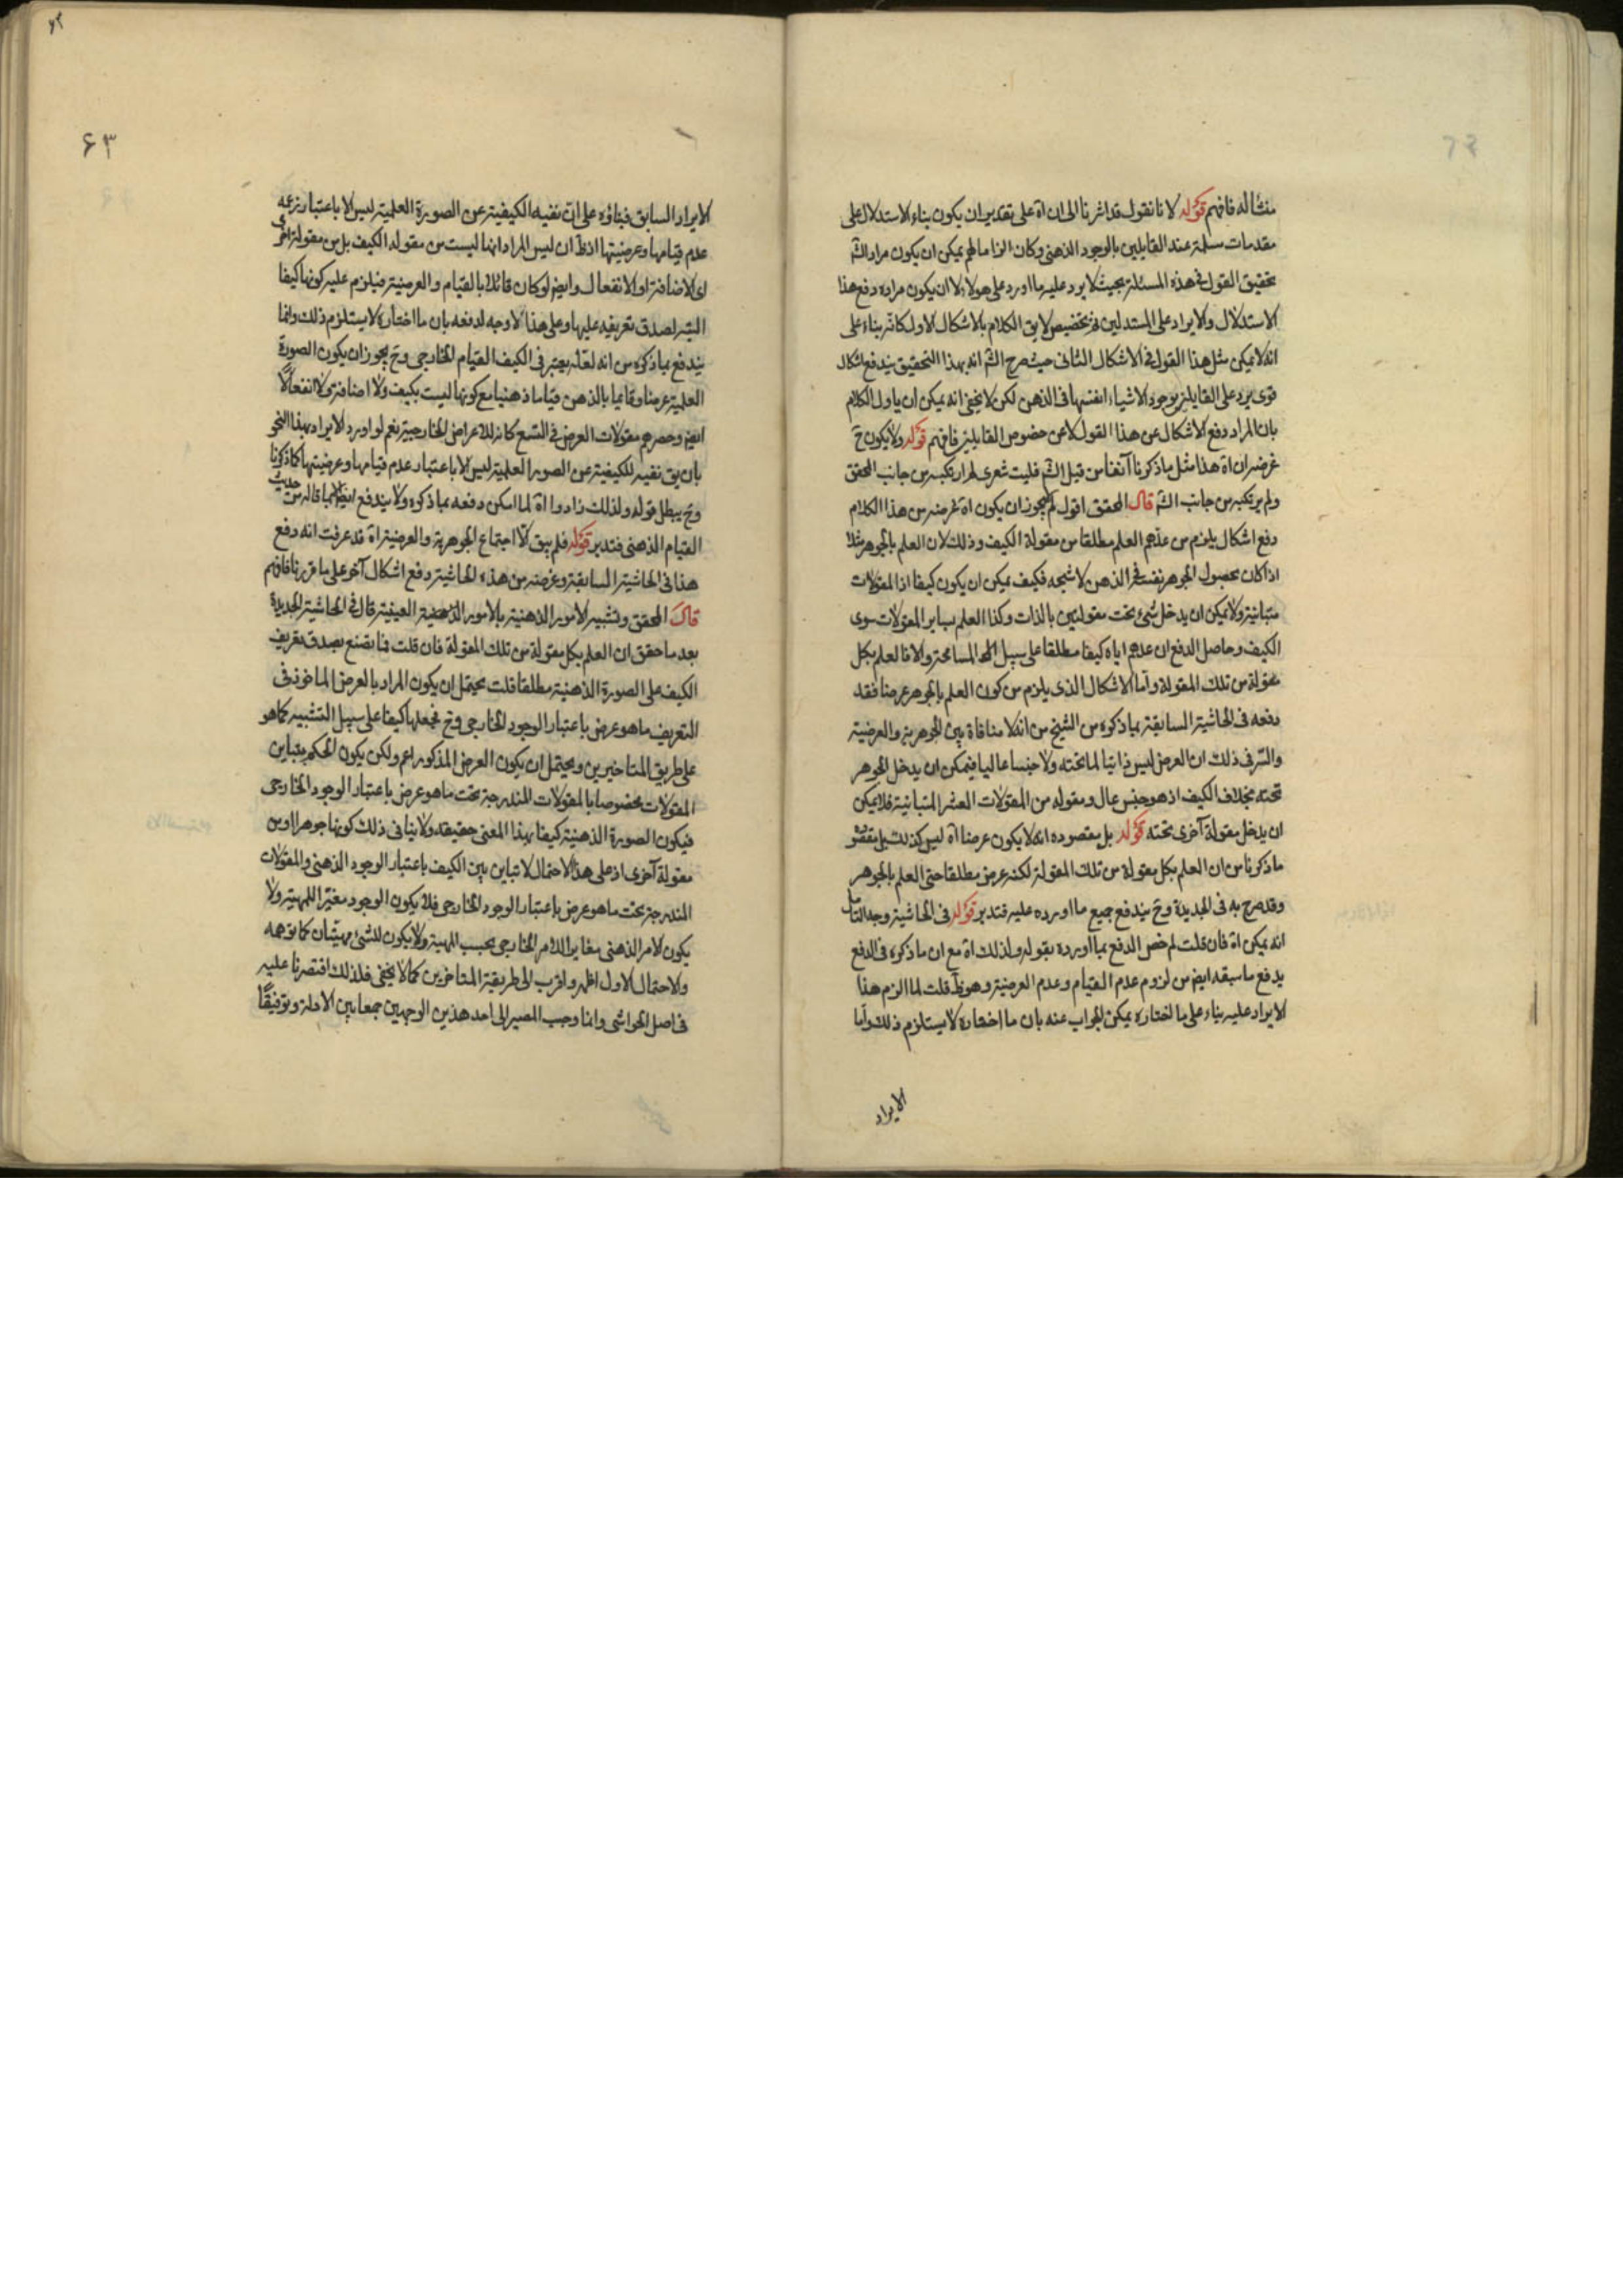 منشأ له فافهم قوله لانا نقول قد اشرنا الى ان اه على تقدير ان يكون بناء الاستدلال على
مقدمات مسلمة عند القايلين بالوجود الذهنى وكان الزاما لهم يمكن ان يكون مراد الش
تحقيق القول فى هذه المسئلة بحيث لا يرد عليه ما اورد على هولاء لا ان يكون مراده دفع هذا
الاستدلال والايراد على المستدلين تخصيص لايق الكلام بالاشكال الاول كانه بناء على
انه لا يمكن مثل هذا القول فى الاشكال الثانى حيث صرح الش انه بهذا التحقيق يندفع اشكال
قوى يرد على القايلين بوجود الاشياء انفسها فى الذهن لكن لا يخفى انه يمكن ان ياول الكلام
بان المراد دفع الاشكال عن هذا القول لا عن خصوص القايلين فافهم قوله ولا يكون ح
غرضه ان اه هذا مثل ما ذكرنا آنفا من قبل الش فليت شعرى لم ارتكبه من جانب المحقق
ولم يرتكبه من جانب الش قال المحقق اقول لم يجوز ان يكون اه غرضه من هذا الكلام
دفع اشكال يلزم من عدهم العلم مطلقا من مقولة الكيف وذلك لان العلم بالجوهر مثلا
اذا كان بحصول الجوهر نفسه فى الذهن لا شبحه فكيف يمكن ان يكون كيفا اذ المقولات
متباينة ولا يمكن ان يدخل شئ تحت مقولتين بالذات وكذا العلم بساير المقولات سوى
الكيف وحاصل الدفع ان عدهم اياه كيفا مطلقا على سبيل المسامحة والا فالعلم بكل
مقولة من تلك المقولة واما الاشكال الذى يلزم من كون العلم بالجوهر عرضا فقد
دفعه فى الحاشية السابقة بما ذكره من الشيخ من انه لا منافاة بين الجوهرية والعرضية
والسر فى ذلك ان العرض ليس ذاتيا لما تحته ولا جنسا عاليا فيمكن ان يدخل الجوهر
تحته بخلاف الكيف اذ هو جنس عال ومقوله من المقولات العشر المتباينة فلا يمكن
ان يدخل مقولة آخرى تحته قوله بل مقصوده انه لا يكون عرضا اه ليس كذلك بل مقصوده
ما ذكرنا من ان العلم بكل مقولة من تلك المقولة لكنه عرض مطلقا حتى العلم بالجوهر
وقد صرح به فى الجديدة وح يندفع جميع ما اورده عليه فتدبر قوله فى الحاشية وجه التامل
انه يمكن اه فان قلت لم خص الدفع بما اورده بقوله ولذلك اه مع ان ما ذكره فى الدفع
يدفع ما سبقه ايض من لزوم عدم القيام وعدم العرضية وهو ظ قلت لما الزم هذا
الايراد عليه بناء على ما اختاره يمكن الجواب عنه بان ما اختاره لا يستلزم ذلك واما
الايراد
۶۳
الايراد السابق فبناؤه على ان نفيه الكيفية عن الصورة العلمية ليس الا باعتبار نزعه
عدم قيامها وعرضيتها اذ ظ ان ليس المراد انها ليست من مقوله الكيف بل من مقولة اخرى
اى الاضافة او الانفعال وايض لو كان قائلا بالقيام والعرضية فيلزم عليه كونها كيفا
البتة لصدق تعريفه عليها وعلى هذا لا وجه لدفعه بان ما اختاره لا يستلزم ذلك وانما
يندفع بما ذكره من انه لعله يعتبر فى الكيف القيام الخارجى وح يجوز ان يكون الصورة
العلمية عرضا وقايما بالذهن قياما ذهنيا مع كونها ليست بكيف ولا اضافة ولا انفعالا
ايض وحصرهم مقولات العرض فى التسع كانه للاعراض الخارجية نعم لو اورد الايراد بهذا النحو
بان يق نفيه للكيفية عن الصور العلمية ليس الا باعتبار عدم قيامها وعرضيتها كما ذكرنا
وح يبطل قوله ولذلك زادوا اه لما امكن دفعه بما ذكره ولا يندفع ايض الا بما قاله من حديث
القيام الذهنى فتدبر قوله فلم يبق الا اجتماع الجوهرية والعرضية اه قد عرفت انه دفع
هذا فى الحاشية السابقة وغرضه من هذه الحاشية دفع اشكال آخر على ما قررنا فافهم
قال المحقق وتشبيه الامور الذهنية بالامور العينية قال فى الحاشية الجديدة
بعد ما حقق ان العلم بكل مقولة من تلك المقولة فان قلت فما تصنع بصدق تعريف
الكيف على الصورة الذهنية مطلقا قلت يحتمل ان يكون المراد بالعرض الماخوذ فى
التعريف ما هو عرض باعتبار الوجود الخارجى وح فجعلها كيفا على سبيل التشبيه كما هو
على طريق المتاخيرين ويحتمل ان يكون العرض المذكور اعم ولكن يكون الحكم بتباين
المقولات مخصوصا بالمقولات المندرجة تحت ما هو عرض باعتبار الوجود الخارجى
فيكون الصورة الذهنية كيفا بهذا المعنى حقيقة ولا ينافى ذلك كونها جوهرا او من
مقولة آخرى اذ على هذا الاحتمال لا تباين بين الكيف باعتبار الوجود الذهنى والمقولات
المندرجة تحت ما هو عرض باعتبار الوجود الخارجى فلا يكون الوجود مغيرا للمهية ولا
يكون الامر الذهنى مغايرا للامر الخارجى بحسب المهية ولا يكون للشئ مهيتان كما توهمه
والاحتمال الاول اظهر واقرب الى طريقة المتاخرين كما لا يخفى فلذلك اقتصرنا عليه
فى اصل الحواشى وانما وجب المصير الى احد هذين الوجهين جمعا بين الادلة وتوفيقا